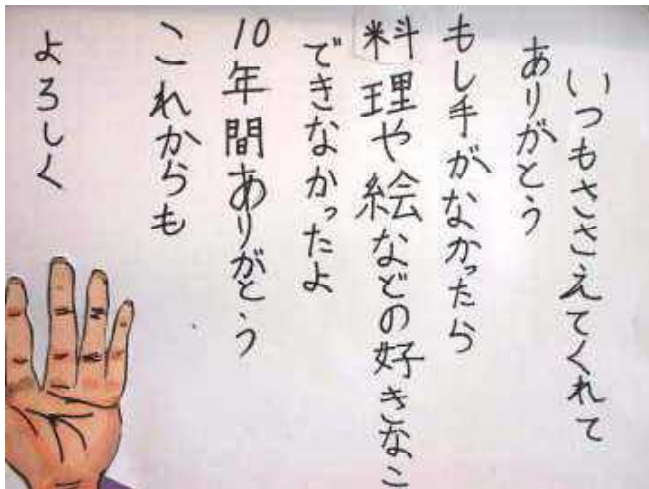 いつもささえてくれて
ありがとう
もし手がなかったら
料理や絵などの好きなこ
できなかったよ
10年間ありがとう
これからも
よろしく